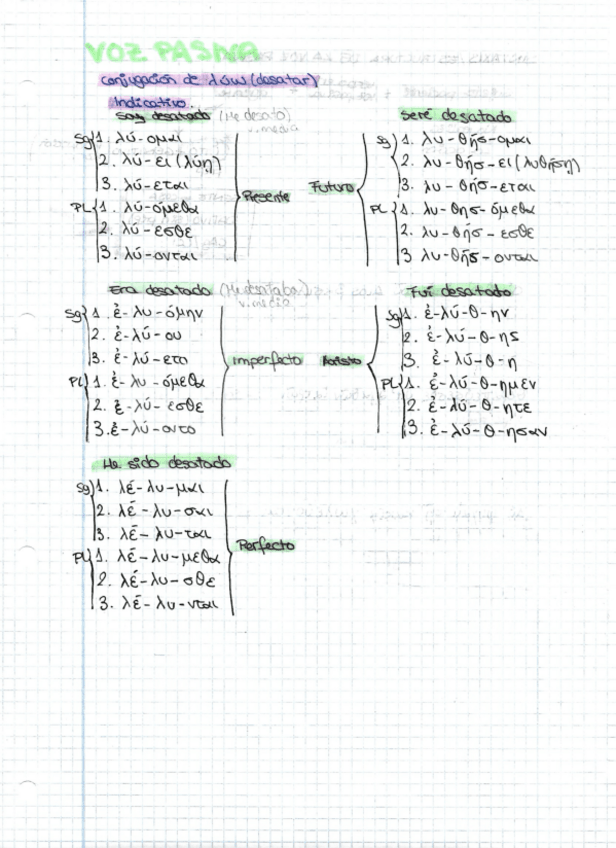 VOZ PASIVA
conjugación de λύω (desatar)
Indicativo.
Soy desatado (Me desato) v.media
Sg 1. λύ-ομαι
2. λύ-ει (λύῃ)
3. λύ-εται
PL 1. λύ-όμεθα
2. λύ-εσθε
3. λύ-ονται
Presente
Seré desatado
Sg 1. λυ-θήσ-ομαι
2. λυ-θήσ-ει (λυθήσῃ)
3. λυ-θήσ-εται
PL 1. λυ-θησ-όμεθα
2. λυ-θήσ-εσθε
3 λυ-θήσ-ονται
Futuro
Era desatado (Me desataba) v.media
Sg 1. ἐ-λυ-όμην
2. ἐ-λύ-ου
3. ἐ-λύ-ετο
PL 1. ἐ-λυ-όμεθα
2. ἐ-λύ-εσθε
3. ἐ-λύ-οντο
Imperfecto
Fui desatado
Sg 1. ἐ-λύ-θ-ην
2. ἐ-λύ-θ-ης
3. ἐ-λύ-θ-η
PL 1. ἐ-λύ-θ-ημεν
2. ἐ-λύ-θ-ητε
3. ἐ-λύ-θ-ησαν
Aoristo
He sido desatado
Sg 1. λέ-λυ-μαι
2. λέ-λυ-σαι
3. λέ-λυ-ται
PL 1. λέ-λυ-μεθα
2. λέ-λυ-σθε
3. λέ-λυ-νται
Perfecto